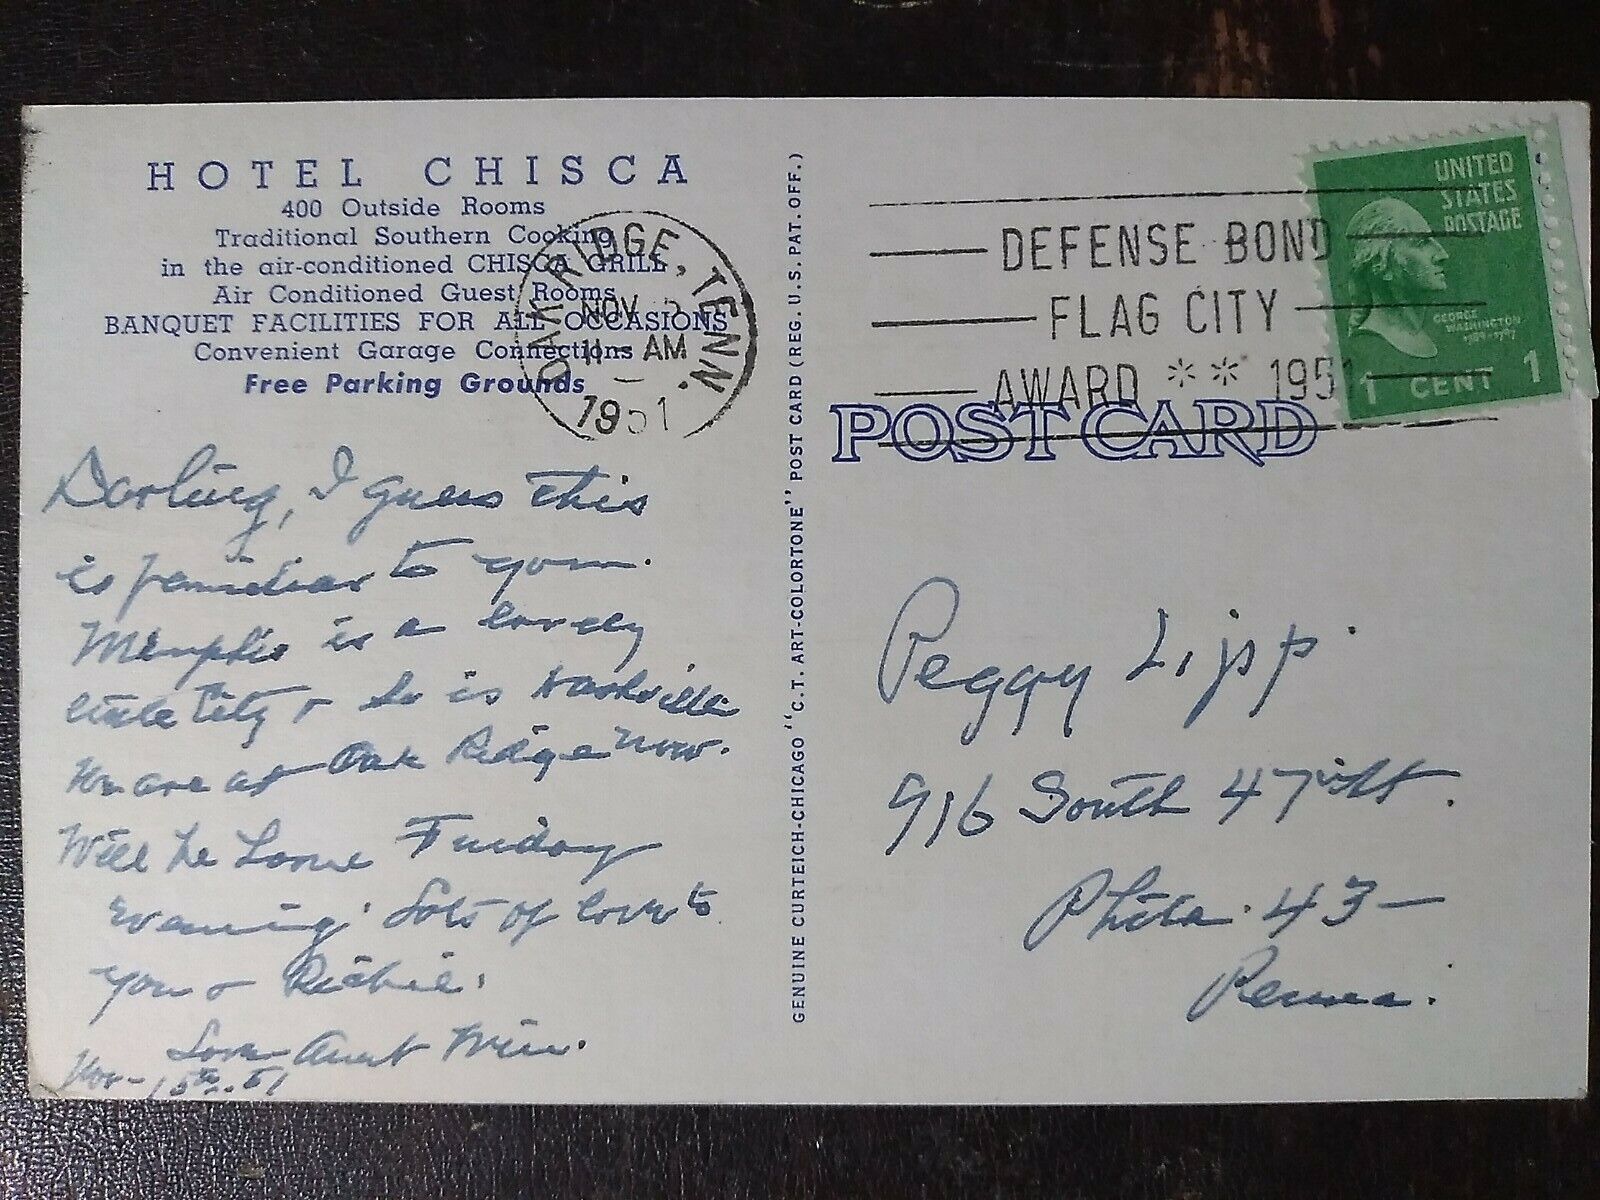 HOTEL CHISCA
400 Outside Rooms
Traditional Southern Cooking
in the air-conditioned CHISCA GRILL
Air Conditioned Guest Rooms
BANQUET FACILITIES FOR ALL OCCASIONS
Convenient Garage Connections
Free Parking Grounds
OAK RIDGE, TENN.
NOV 5
11 - AM
1951
DEFENSE BOND
FLAG CITY
AWARD ** 1951
UNITED
STATES
POSTAGE
GEORGE
WASHINGTON
1789-1797
1 CENT 1
POST CARD
GENUINE CURTEICH-CHICAGO "C.T. ART-COLORTONE" POST CARD (REG. U.S. PAT. OFF.)
Darling, I guess this
is familiar to you.
Memphis is a lovely
little city & so is Nashville
We are at Oak Ridge now.
Will be home Friday
evening. Lots of love to
you & Richie.
Love Aunt
Nov- 15th-51
Peggy Lipp.
916 South 47th St.
Phila. 43-
Penna.